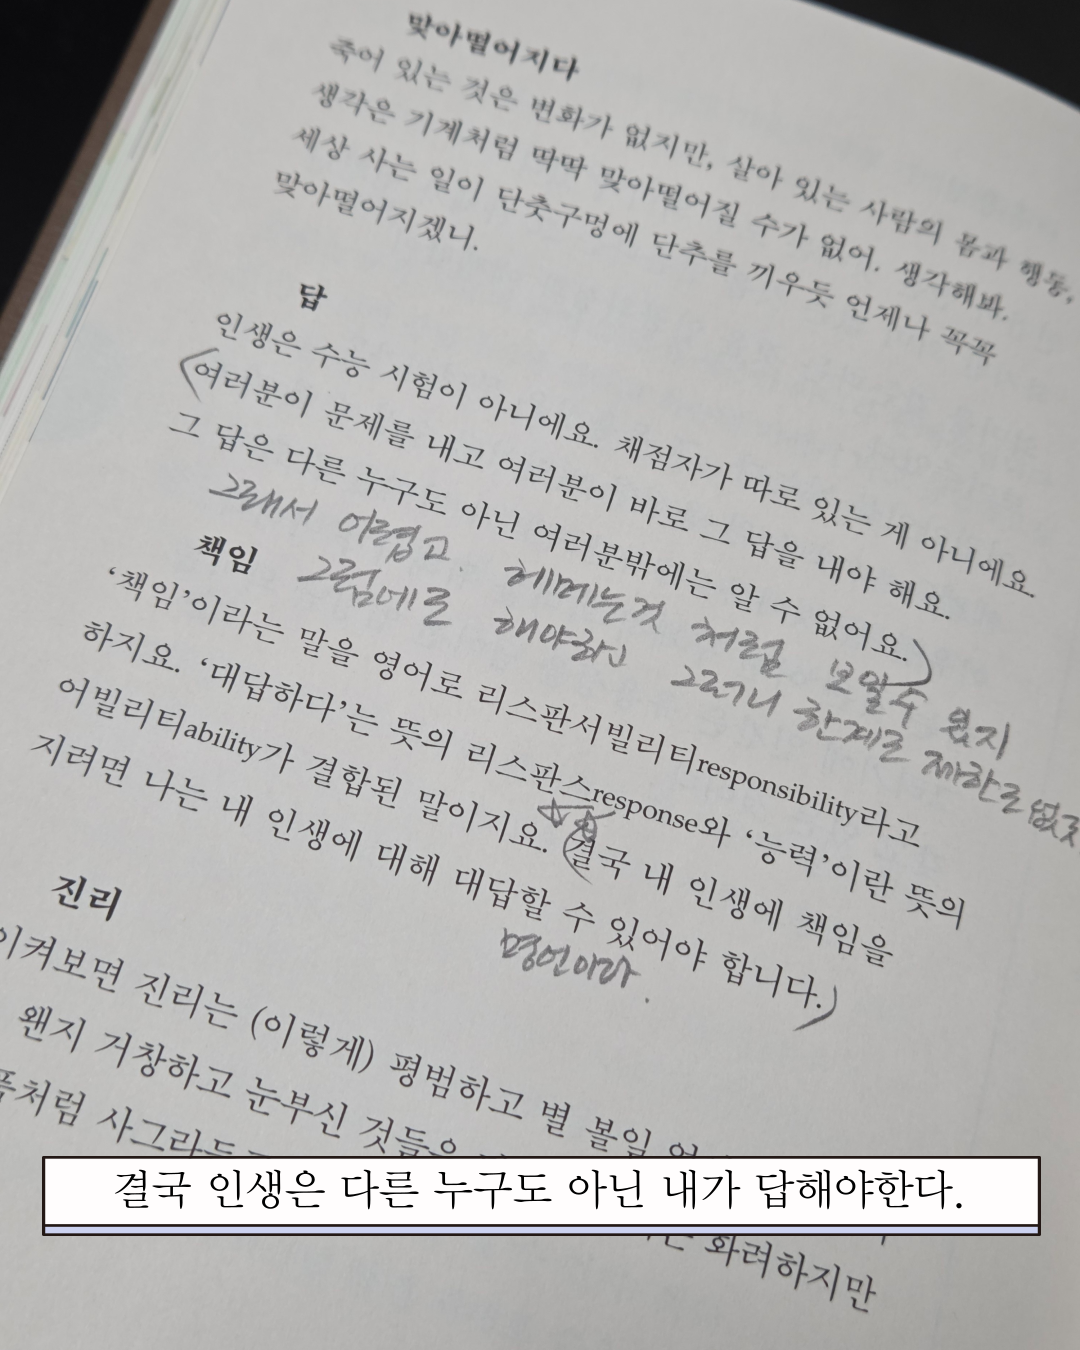 맞아떨어지다
죽어 있는 것은 변화가 없지만, 살아 있는 사람의 몸과 행동,
생각은 기계처럼 딱딱 맞아떨어질 수가 없어. 생각해봐.
세상 사는 일이 단춧구멍에 단추를 끼우듯 언제나 꼭꼭
맞아떨어지겠니.
답
인생은 수능 시험이 아니에요. 채점자가 따로 있는 게 아니에요.
(여러분이 문제를 내고 여러분이 바로 그 답을 내야 해요.
그 답은 다른 누구도 아닌 여러분밖에는 알 수 없어요.)
그래서 어렵고. 헤메는것 처럼 보일수 있지
그럼에도 해야하고 그러니 한계도 제한도 없고
책임
'책임'이라는 말을 영어로 리스판서빌리티responsibility라고
하지요. '대답하다'는 뜻의 리스판스response와 '능력'이란 뜻의
어빌리티ability가 결합된 말이지요. (결국 내 인생에 책임을
지려면 나는 내 인생에 대해 대답할 수 있어야 합니다.)
명언이라.
진리
이켜보면 진리는 (이렇게) 평범하고 별 볼일
왠지 거창하고 눈부신 것들은
처럼 사그라
화려하지만
결국 인생은 다른 누구도 아닌 내가 답해야한다.